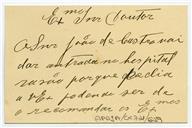 Emo
Ex Snr Doutor
O Snr João de Castro vai
dar entrada no hospital
rasão porque pedia
a V Ex podendo ser de
o recomendar os Emos